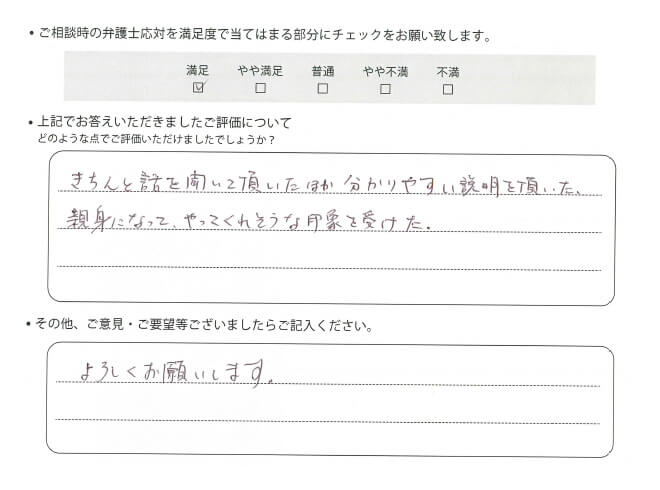 ・ご相談時の弁護士応対を満足度で当てはまる部分にチェックをお願い致します。
満足 やや満足 普通 やや不満 不満
☑ ☐ ☐ ☐ ☐
・上記でお答えいただきましたご評価について
どのような点でご評価いただけましたでしょうか？
きちんと話を聞いて頂いたほか分かりやすい説明を頂いた、
親身になって、やってくれそうな印象を受けた.
・その他、ご意見・ご要望等ございましたらご記入ください。
よろしくお願いします。